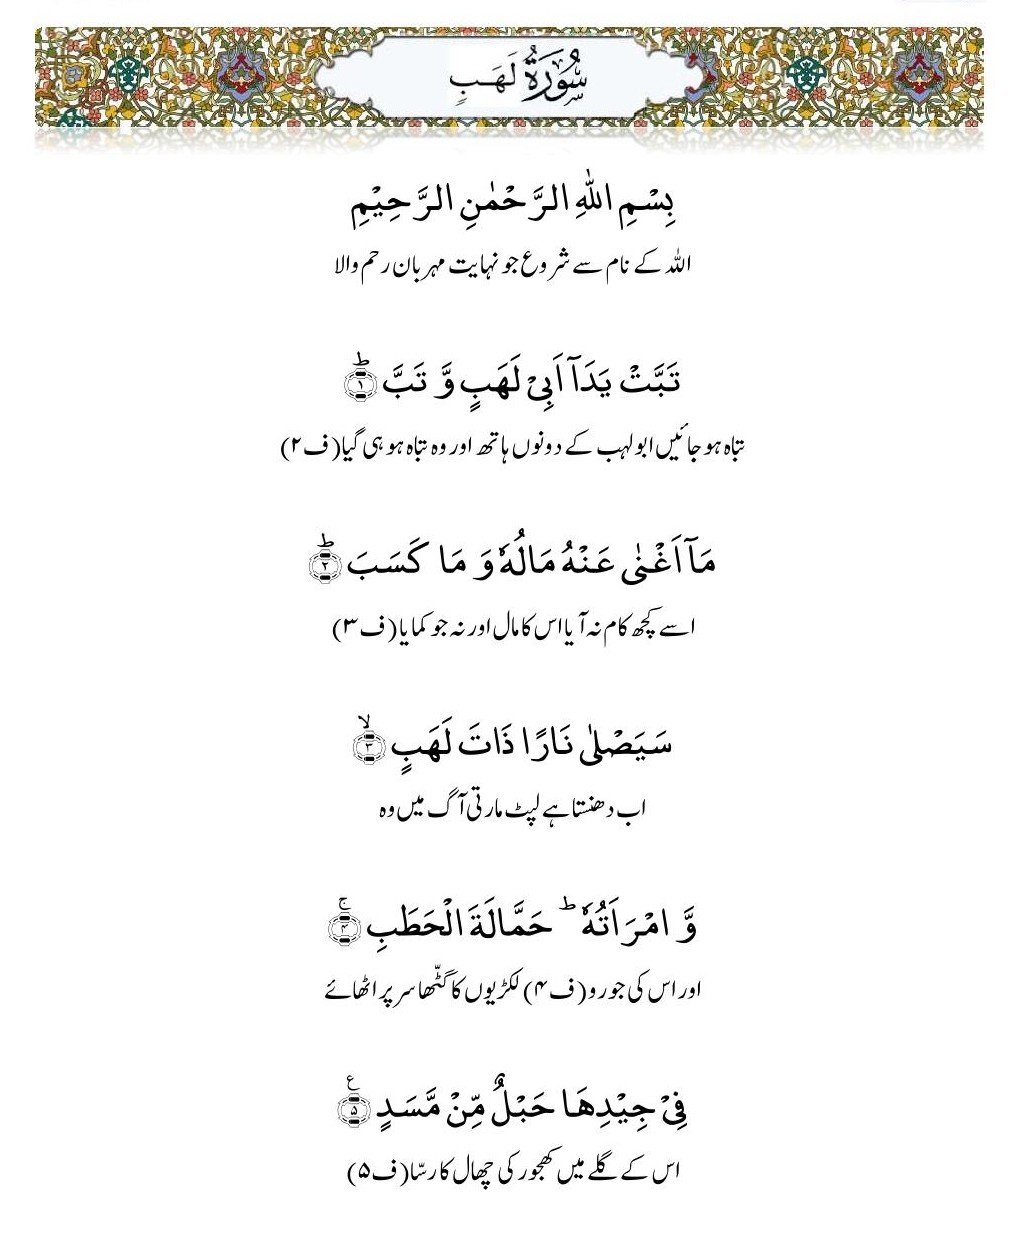 سُوْرَةُ لَهَبٍ
بِسْمِ اللّٰهِ الرَّحْمٰنِ الرَّحِیْمِ
اللہ کے نام سے شروع جو نہایت مہربان رحم والا
تَبَّتْ یَدَاۤ اَبِیْ لَهَبٍ وَّ تَبَّؕ۝۱
تباہ ہو جائیں ابولہب کے دونوں ہاتھ اور وہ تباہ ہو ہی گیا(ف۲)
مَاۤ اَغْنٰی عَنْهُ مَالُهٗ وَ مَا كَسَبَؕ۝۲
اسے کچھ کام نہ آیا اس کا مال اور نہ جو کمایا(ف۳)
سَیَصْلٰی نَارًا ذَاتَ لَهَبٍۙ۝۳
اب دھنستا ہے لپٹ مارتی آگ میں وہ
وَّ امْرَاَتُهٗؕ حَمَّالَةَ الْحَطَبِۚ۝۴
اور اس کی جورو(ف۴)لکڑیوں کا گٹّھا سر پر اٹھائے
فِیْ جِیْدِهَا حَبْلٌ مِّنْ مَّسَدٍ۠۝۵
اس کے گلے میں کھجور کی چھال کا رسّا(ف۵)